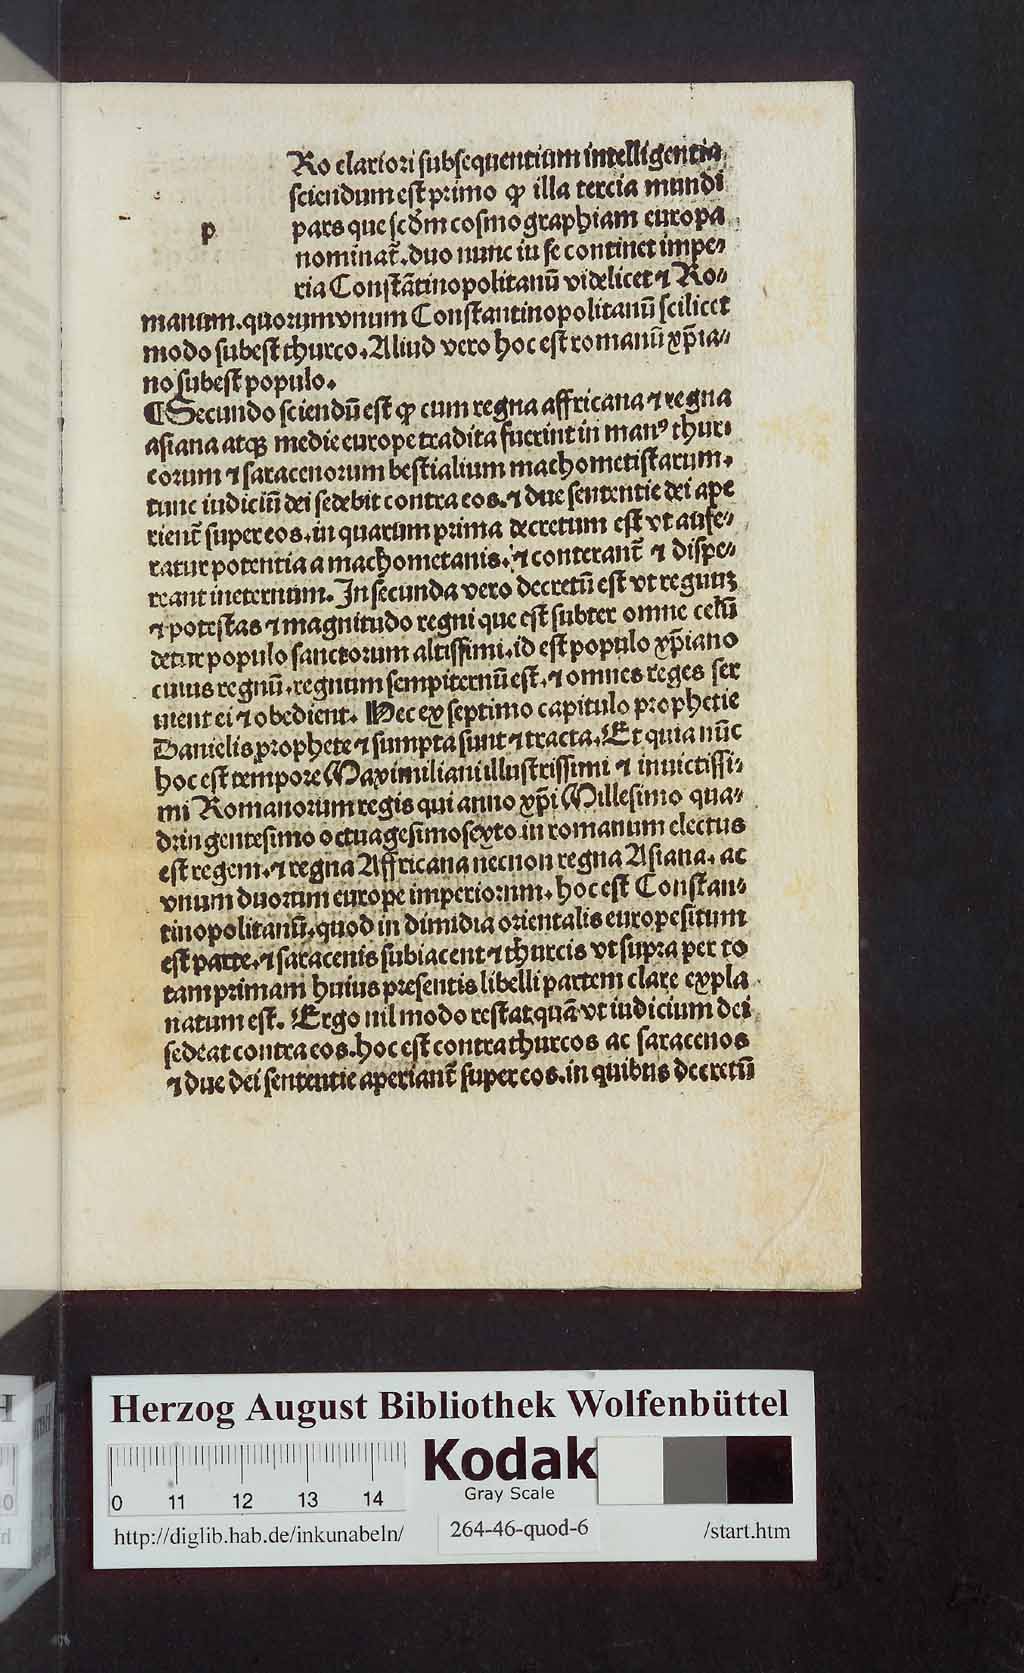 pRo clariori subsequentium intelligentia
sciendum est primo ꝙ illa tercia mundi
pars que scd̄m cosmographiam europa
nominat̄. duo nunc in se continet impe⸗
ria Constātinopolitanū videlicet ⁊ Ro⸗
manum. quorum vnum Constantinopolitanū scilicet
modo subest thurco. Aliud vero hoc est romanū xp̄ia⸗
no subest populo.
¶ Secundo sciendū est ꝙ cum regna affricana ⁊ regna
asiana atqꝫ medie europe tradita fuerint in manꝰ thur⸗
corum ⁊ saracenorum bestialium machometistarum.
tunc iudiciū dei sedebit contra eos. ⁊ due sententie dei ape
rient̄ super eos. in quarum prima decretum est vt aufe⸗
ratur potentia a machometanis. ⁊ conterant̄ ⁊ dispe⸗
reant ineternum. In secunda vero decretū est vt regnuꝫ
⁊ potestas ⁊ magnitudo regni que est subter omne celū
detur populo sanctorum altissimi. id est populo xp̄iano
cuius regnū. regnum sempiternū est. ⁊ omnes reges ser
uient ei ⁊ obedient. Hec ex septimo capitulo prophetie
Danielis prophete ⁊ sumpta sunt ⁊ tracta. Et quia nūc
hoc est tempore Maximiliani illustrissimi ⁊ inuictissi⸗
mi Romanorum regis qui anno xp̄i Millesimo qua⸗
dringentesimo octuagesimosexto in romanum electus
est regem. ⁊ regna Affricana necnon regna Asiana. ac
vnum duorum europe imperiorum. hoc est Constan⸗
tinopolitanū. quod in dimidia orientalis europe situm
est parte. ⁊ saracenis subiacent ⁊ thurcis vt supra per to
tam primam huius presentis libelli partem clare expla
natum est. Ergo nil modo restat quā vt iudicium dei
sedeat contra eos. hoc est contra thurcos ac saracenos
⁊ due dei sententie aperiant̄ super eos. in quibus decretū
Herzog August Bibliothek Wolfenbüttel
Kodak
Gray Scale
0 11 12 13 14
http://diglib.hab.de/inkunabeln/ 264-46-quod-6 /start.htm